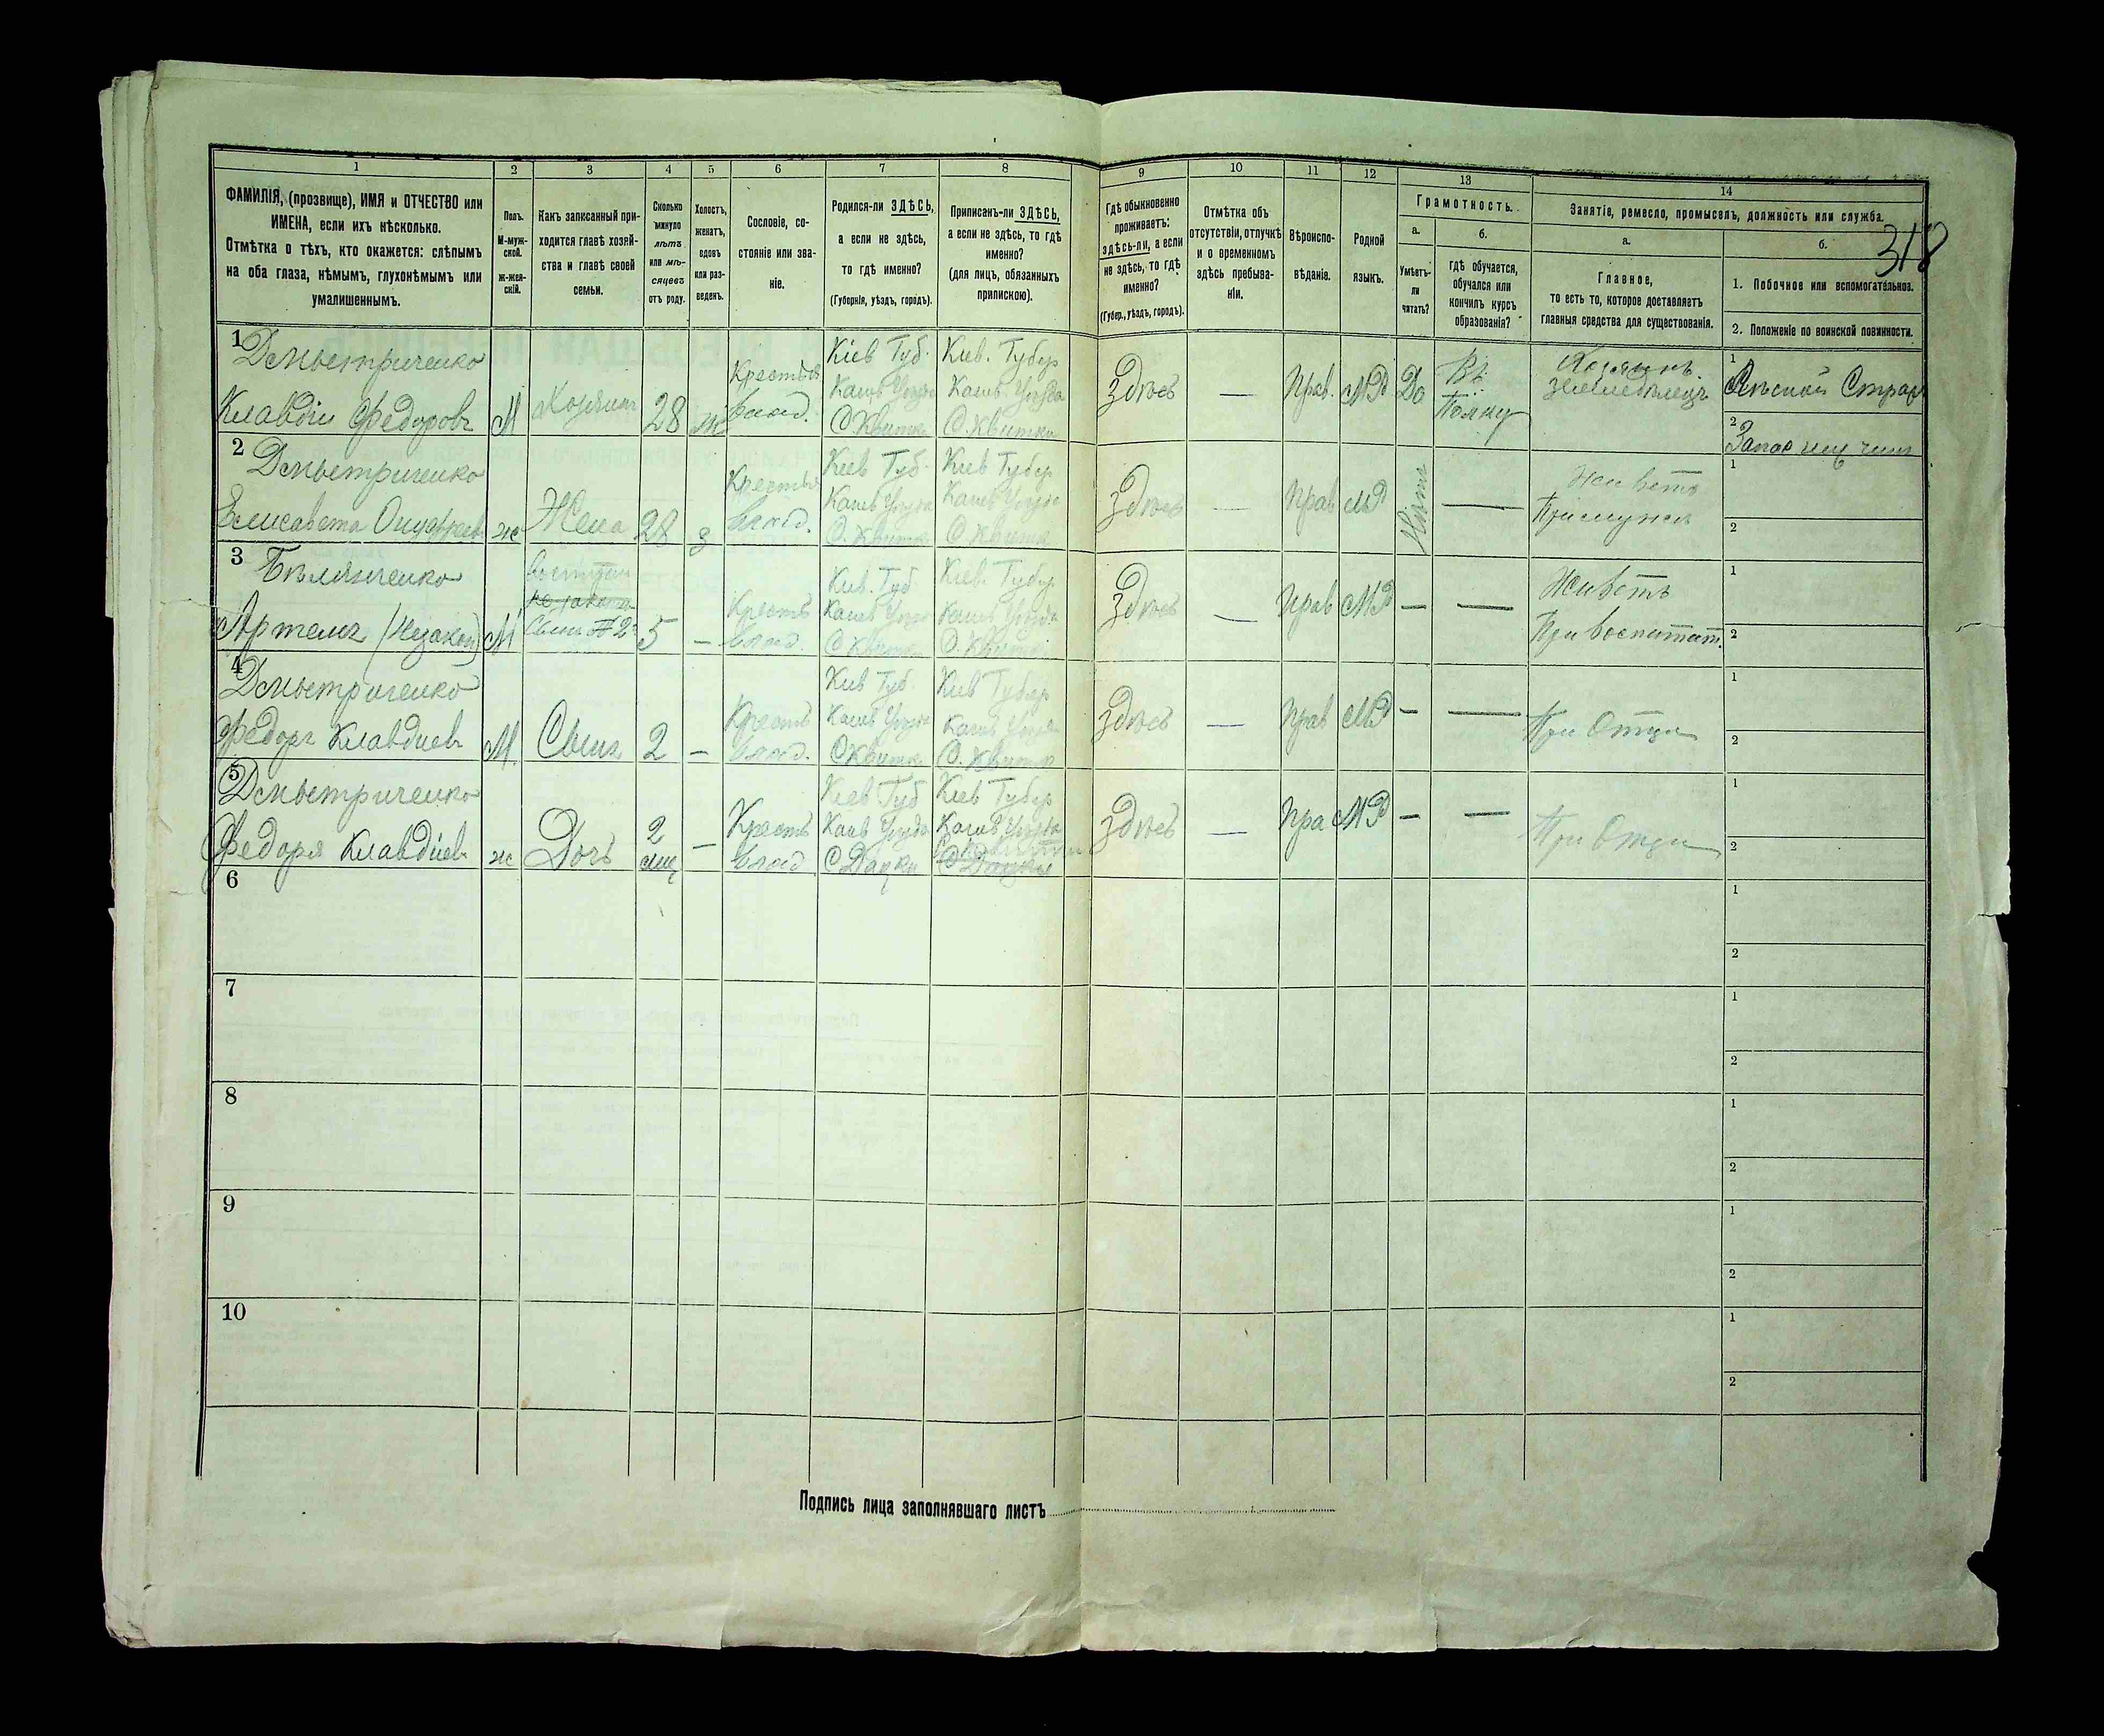 318
1
2
3
4
5
6
7
8
9
10
11
12
13
14
ФАМИЛІЯ, (прозвище), ИМЯ и ОТЧЕСТВО или
ИМЕНА, если ихъ нѣсколько.
Отмѣтка о тѣхъ, кто окажется: слѣпымъ
на оба глаза, нѣмымъ, глухонѣмымъ или
умалишеннымъ.
Полъ.
М-муж-
ской.
ж-жен-
скій.
Какъ записанный при-
ходится главѣ хозяй-
ства и главѣ своей
семьи.
Сколько
минуло
лѣтъ
или мѣ-
сяцевъ
отъ роду.
Холостъ,
женатъ,
вдовъ
или раз-
веденъ.
Сословіе, со-
стояніе или зва-
ніе.
Родился-ли ЗДѢСЬ,
а если не здѣсь,
то гдѣ именно?
(Губернія, уѣздъ, городъ).
Приписанъ-ли ЗДѢСЬ,
а если не здѣсь, то гдѣ
именно?
(для лицъ, обязанныхъ
припискою).
Гдѣ обыкновенно
проживаетъ:
здѣсь-ли, а если
не здѣсь, то гдѣ
именно?
(Губер., уѣздъ, городъ).
Отмѣтка объ
отсутствіи, отлучкѣ
и о временномъ
здѣсь пребыва-
ніи.
Вѣроиспо-
вѣданіе.
Родной
языкъ.
Грамотность.
а.
Умѣетъ-
ли
читать?
б.
гдѣ обучается,
обучался или
кончилъ курсъ
образованія?
Занятіе, ремесло, промыселъ, должность или служба.
а.
Главное,
то есть то, которое доставляетъ
главныя средства для существованія.
б.
1. Побочное или вспомогательное.
2. Положеніе по воинской повинности.
1
Дмьетриченко
Клавдій Федоровъ
М
Хозяинъ
28
ж
Кіев Губ.
Канев Уѣзда
С. Квитки
Киев. Губер
Канев. Уѣзда
С. Квитки
Здѣсь
—
Прав.
МР
До
Въ
Полку
Хозяинъ.
Земледѣлецъ
1
Лѣсной
2
Запас
2
Дмьетриченко
Елисавета
ж
Жена
28
з
Киев Губ.
Канев Уѣзда
С. Квитки
Киев Губер
Канев Уѣзда
С. Квитки
Здѣсь
—
Прав
МР
Нѣтъ
—
Живетъ
При мужѣ
1
2
3
Артемъ (Незакон)
М
5
—
Киев. Губ
Канев Уѣзда
С. Квитки
Киев. Губер
Канев Уѣзда
С. Квитки
Здѣсь
—
Прав
МР
—
—
Живетъ
При воспитат.
1
2
4
Дмьетриченко
Федоръ Клавдиевъ
М.
Сынъ
2
—
Киев Губ.
Канев Уѣзда
С Квитки
Киев Губер
Канев Уѣзда
С. Квитки
Здѣсь
—
Прав
МР
—
—
При Отцѣ
1
2
5
Дмьетриченко
Федоря Клавдіев
ж
Дочь
2
мец
—
Киев Губ
Канев Уѣзда
С Дацки
Киев Губер
Канев Уѣзда
Здѣсь
—
Пра
МР
—
—
При Отцѣ
1
2
6
1
2
7
1
2
8
1
2
9
1
2
10
1
2
Подпись лица заполнявшаго листъ